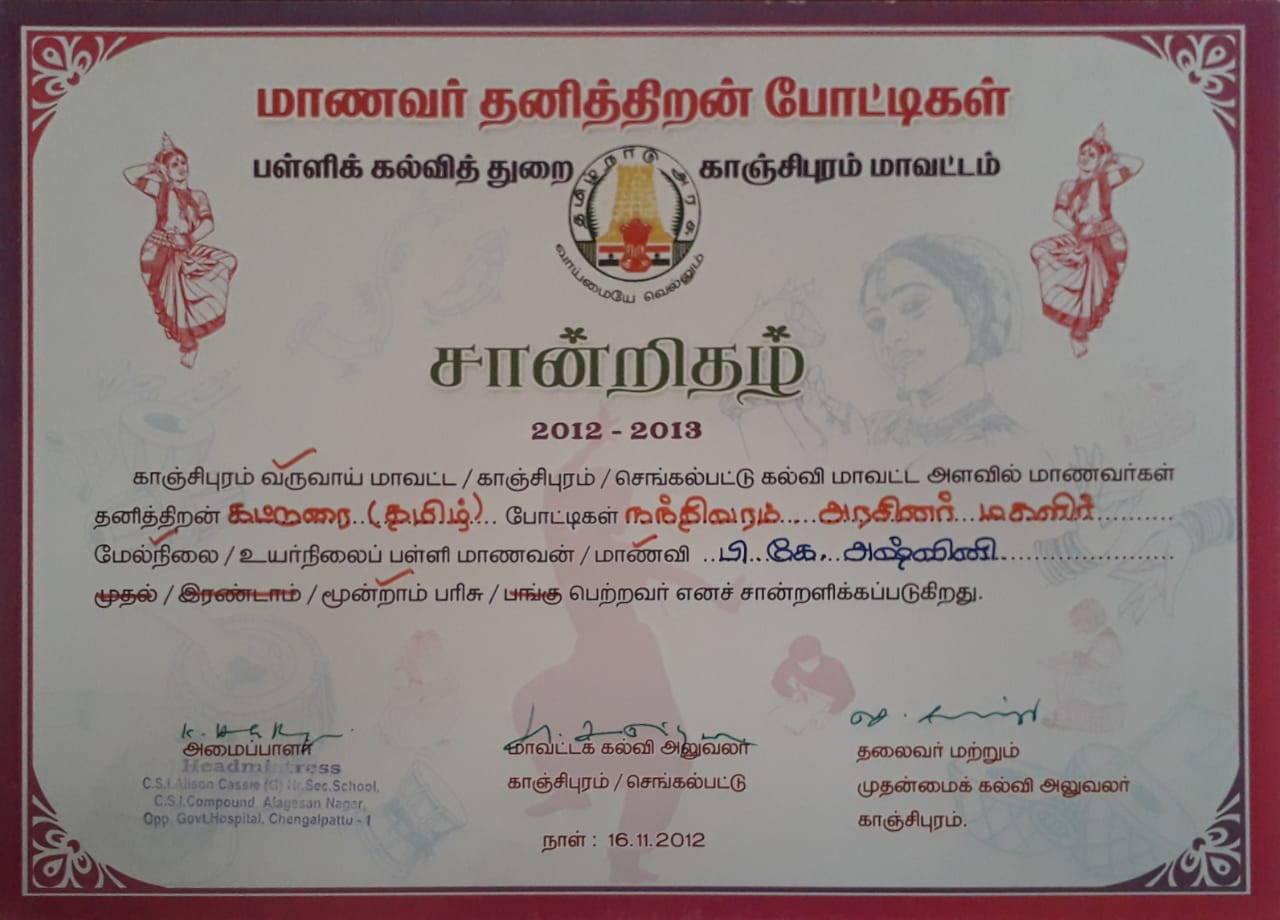 மாணவர் தனித்திறன் போட்டிகள்
பள்ளிக் கல்வித் துறை காஞ்சிபுரம் மாவட்டம்
தமிழ்நாடு அரசு
வாய்மையே வெல்லும்
சான்றிதழ்
2012 - 2013
காஞ்சிபுரம் வருவாய் மாவட்ட / காஞ்சிபுரம் / செங்கல்பட்டு கல்வி மாவட்ட அளவில் மாணவர்கள்
தனித்திறன் கட்டுரை (தமிழ்) போட்டிகள் நந்திவரம் அரசினர் மகளிர்
மேல்நிலை / உயர்நிலைப் பள்ளி மாணவன் / மாணவி பி. கே. அஷ்வினி
முதல் / இரண்டாம் / மூன்றாம் பரிசு / பங்கு பெற்றவர் எனச் சான்றளிக்கப்படுகிறது.
அமைப்பாளர்
Headmistress
C.S.I.Alison Cassie (G) Hr.Sec.School,
C.S.I.Compound, Alagesan Nagar,
Opp. Govt.Hospital, Chengalpattu - 1
மாவட்டக் கல்வி அலுவலர்
காஞ்சிபுரம் / செங்கல்பட்டு
நாள் : 16.11.2012
தலைவர் மற்றும்
முதன்மைக் கல்வி அலுவலர்
காஞ்சிபுரம்.